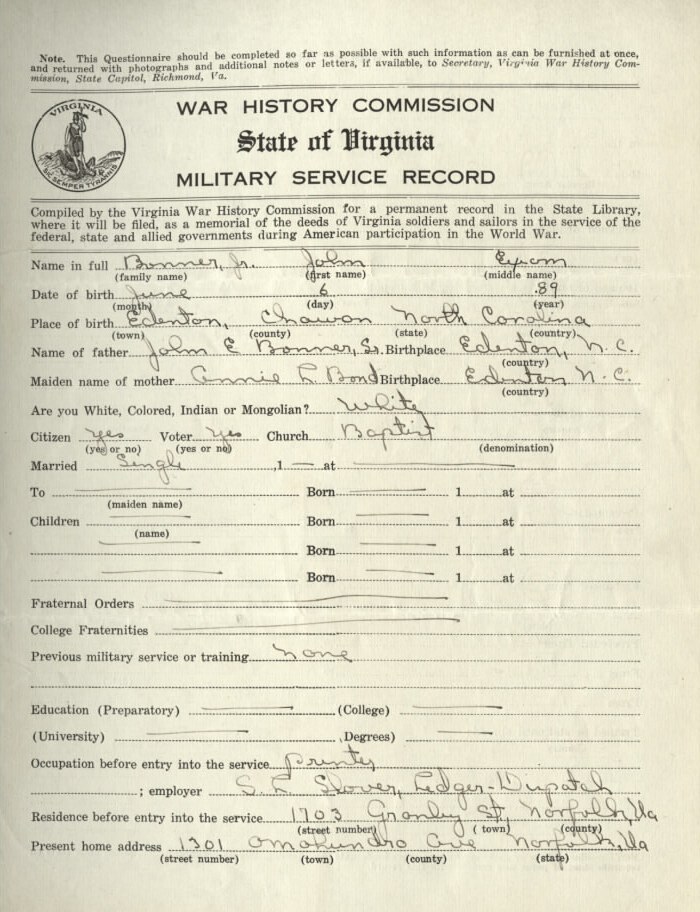 Note. This Questionnaire should be completed so far as possible with such information as can be furnished at once,
and returned with photographs and additional notes or letters, if available, to Secretary, Virginia War History Com-
mission, State Capitol, Richmond, Va.
VIRGINIA
SIC SEMPER TYRANNIS
WAR HISTORY COMMISSION
State of Virginia
MILITARY SERVICE RECORD
Compiled by the Virginia War History Commission for a permanent record in the State Library,
where it will be filed, as a memorial of the deeds of Virginia soldiers and sailors in the service of the
federal, state and allied governments during American participation in the World War.
Name in full Bonner, Jr. John
(family name) (first name) (middle name)
Date of birth June 6 89
(month) (day) (year)
Place of birth Edenton, Chowan North Carolina
(town) (county) (state) (country)
Name of father John E Bonner, Sr. Birthplace Edenton, N. C.
(country)
Maiden name of mother Annie L Bond Birthplace Edenton N. C.
(country)
Are you White, Colored, Indian or Mongolian? White
Citizen yes Voter yes Church Baptist
(yes or no) (yes or no) (denomination)
Married Single , 1 — at
To Born 1 at
(maiden name)
Children Born 1 at
(name)
Born 1 at
Born 1 at
Fraternal Orders
College Fraternities
Previous military service or training none
Education (Preparatory) (College)
(University) , Degrees)
Occupation before entry into the service printer
; employer S. L. Slover, Ledger-Dispatch
Residence before entry into the service 1703 Granby St, Norfolk, Va
(street number) (town) (county)
Present home address 1301 Omohundro Ave Norfolk, Va
(street number) (town) (county) (state)